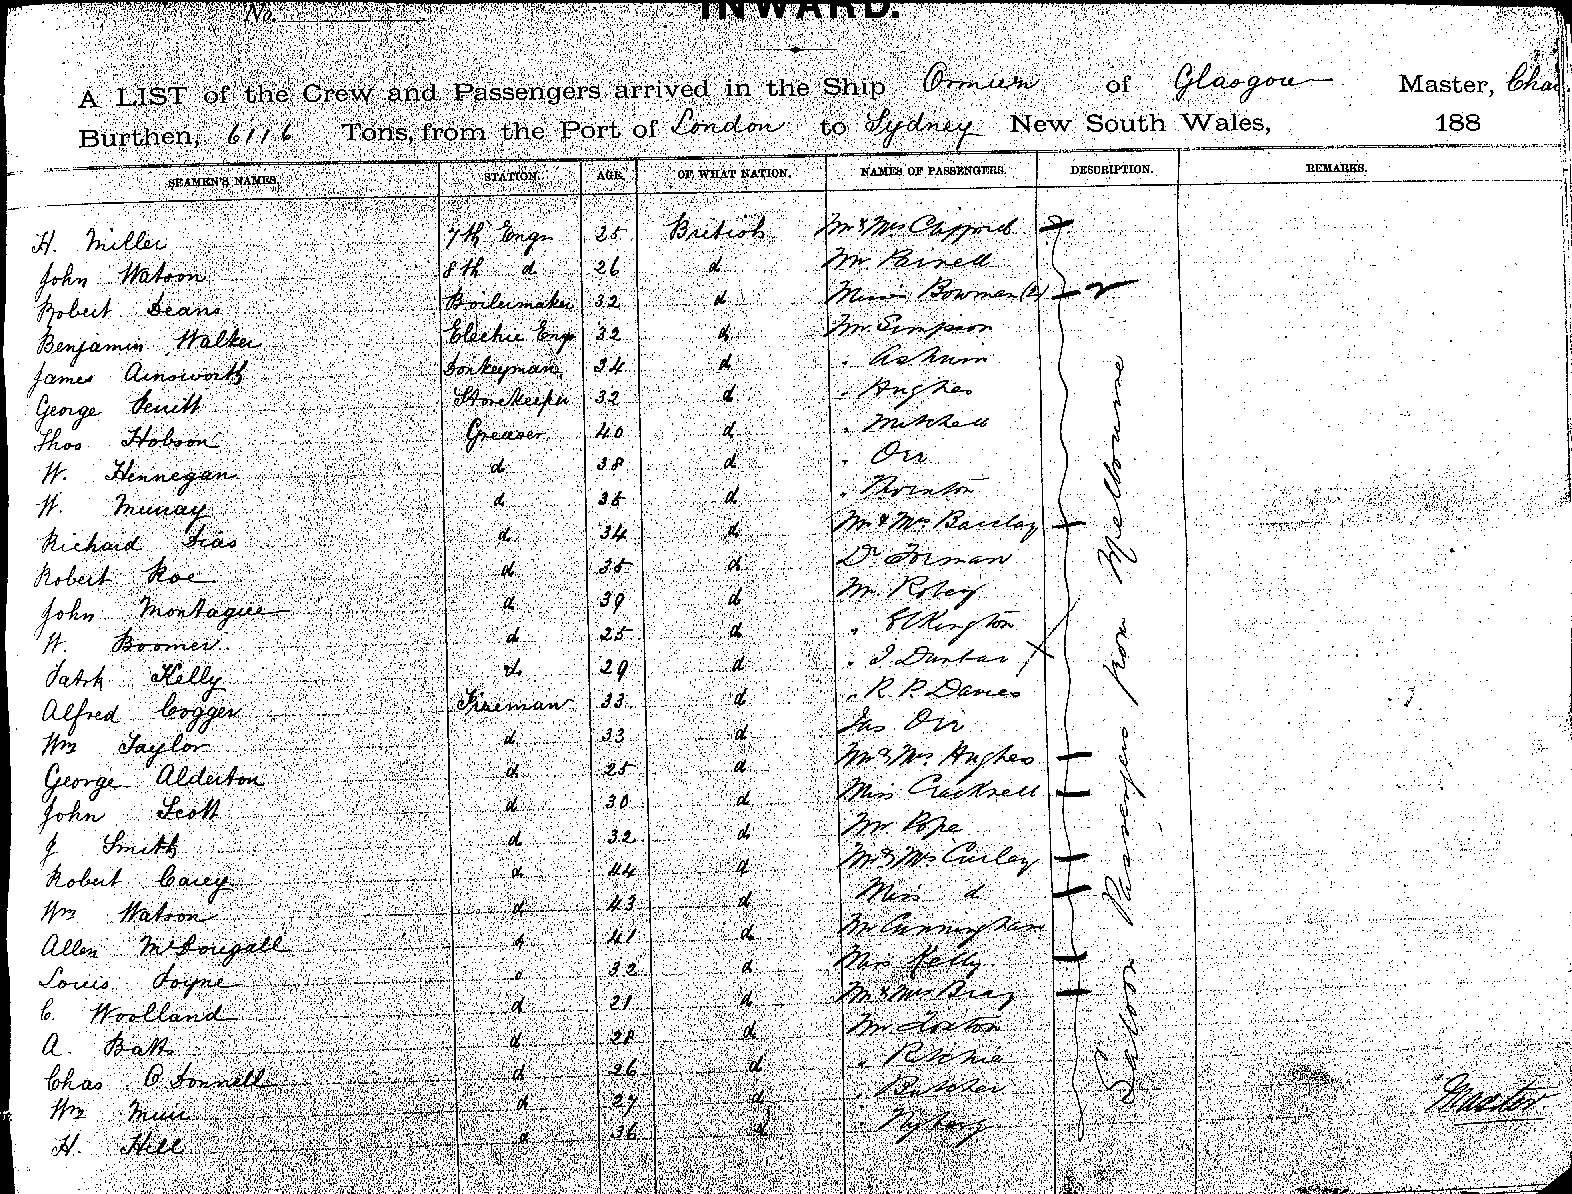 No.
INWARD.
A LIST of the Crew and Passengers arrived in the Ship Ormuz of Glasgow Master, Chas.
Burthen, 6116 Tons, from the Port of London to Sydney New South Wales, 188
SEAMEN'S NAMES. STATION. AGE. OF WHAT NATION. NAMES OF PASSENGERS. DESCRIPTION. REMARKS.
H. Miller 7th Engr 25 British Mr & Mrs Clifford
John Watson 8th d 26 d Mr Parnell
Robert Deans Boilermaker 32 d Misses Bowman (2)
Benjamin Walker Electric Engr 32 d Mr Simpson
James Ainsworth Donkeyman 34 d " Askum
George Storekeeper 32 d " Hughes
Thos Hobson Greaser 40 d " Mitchell
W. Hennegan d 38 d " Orr
W. Murray d 35 d " Thornton
Richard d 34 d Mr & Mrs Barclay
Robert Roe d 35 d Dr Forman
John Montague d 39 d Mr Robey
W. Boomer d 25 d " Elkington
Patk Kelly d 29 d " J. Dunbar
Alfred Cogger Fireman 33 d " R. P. Davies
Wm Taylor d 33 d Jas Orr
George Alderton d 25 d Mr & Mrs Hughes
John Scott d 30 d Miss Cracknell
J Smith d 32 d Mr Pope
Robert Carey d 44 d Mr & Mrs Curley
Wm Watson d 43 d Miss d
Allen McDougall d 41 d Mr Cunningham
Louis Joyne d 32 d Mrs Kelly
C. Woolland d 21 d Mr & Mrs Bray
A. Batt d 28 d Mr Loxton
Chas O'Donnell d 26 d " Ritchie
Wm Muir d 27 d " Butcher
H. Hill d 36 d " Nyberg
Saloon Passengers from Melbourne
Master